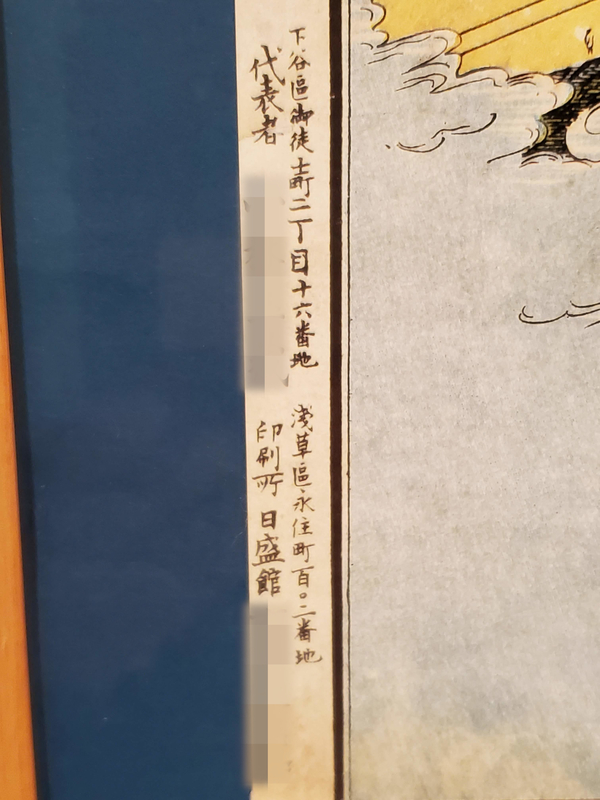 下谷區御徒士町二丁目十六番地
代表者
淺草區永住町百〇二番地
印刷所 日盛館